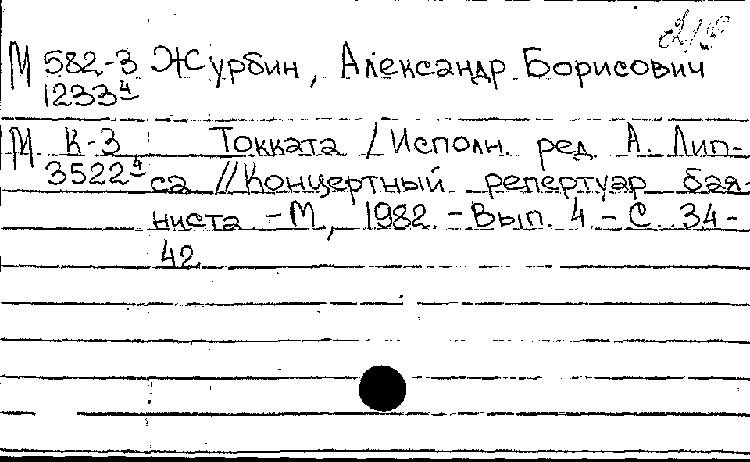 М 582-3 Журбин, Александр Борисович
12334
М К-3 Токката / Исполн. ред. А. Лип-
35224 са // Концертный репертуар бая-
ниста - М, 1982. - Вып. 4 - С. 34-
42